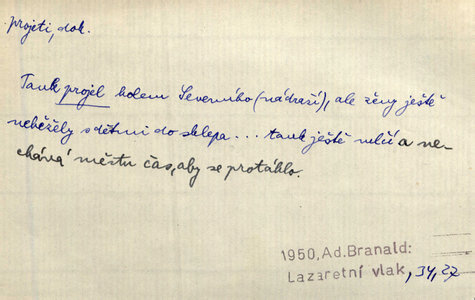 projeti, dok.
Tank projel kolem Severního (nádraží), ale ženy ještě
neběžely s dětmi do sklepa... tank ještě mlčí a ne-
chává městu čas, aby se protáhlo.
1950, Ad. Branald:
Lazaretní vlak, 34, 27